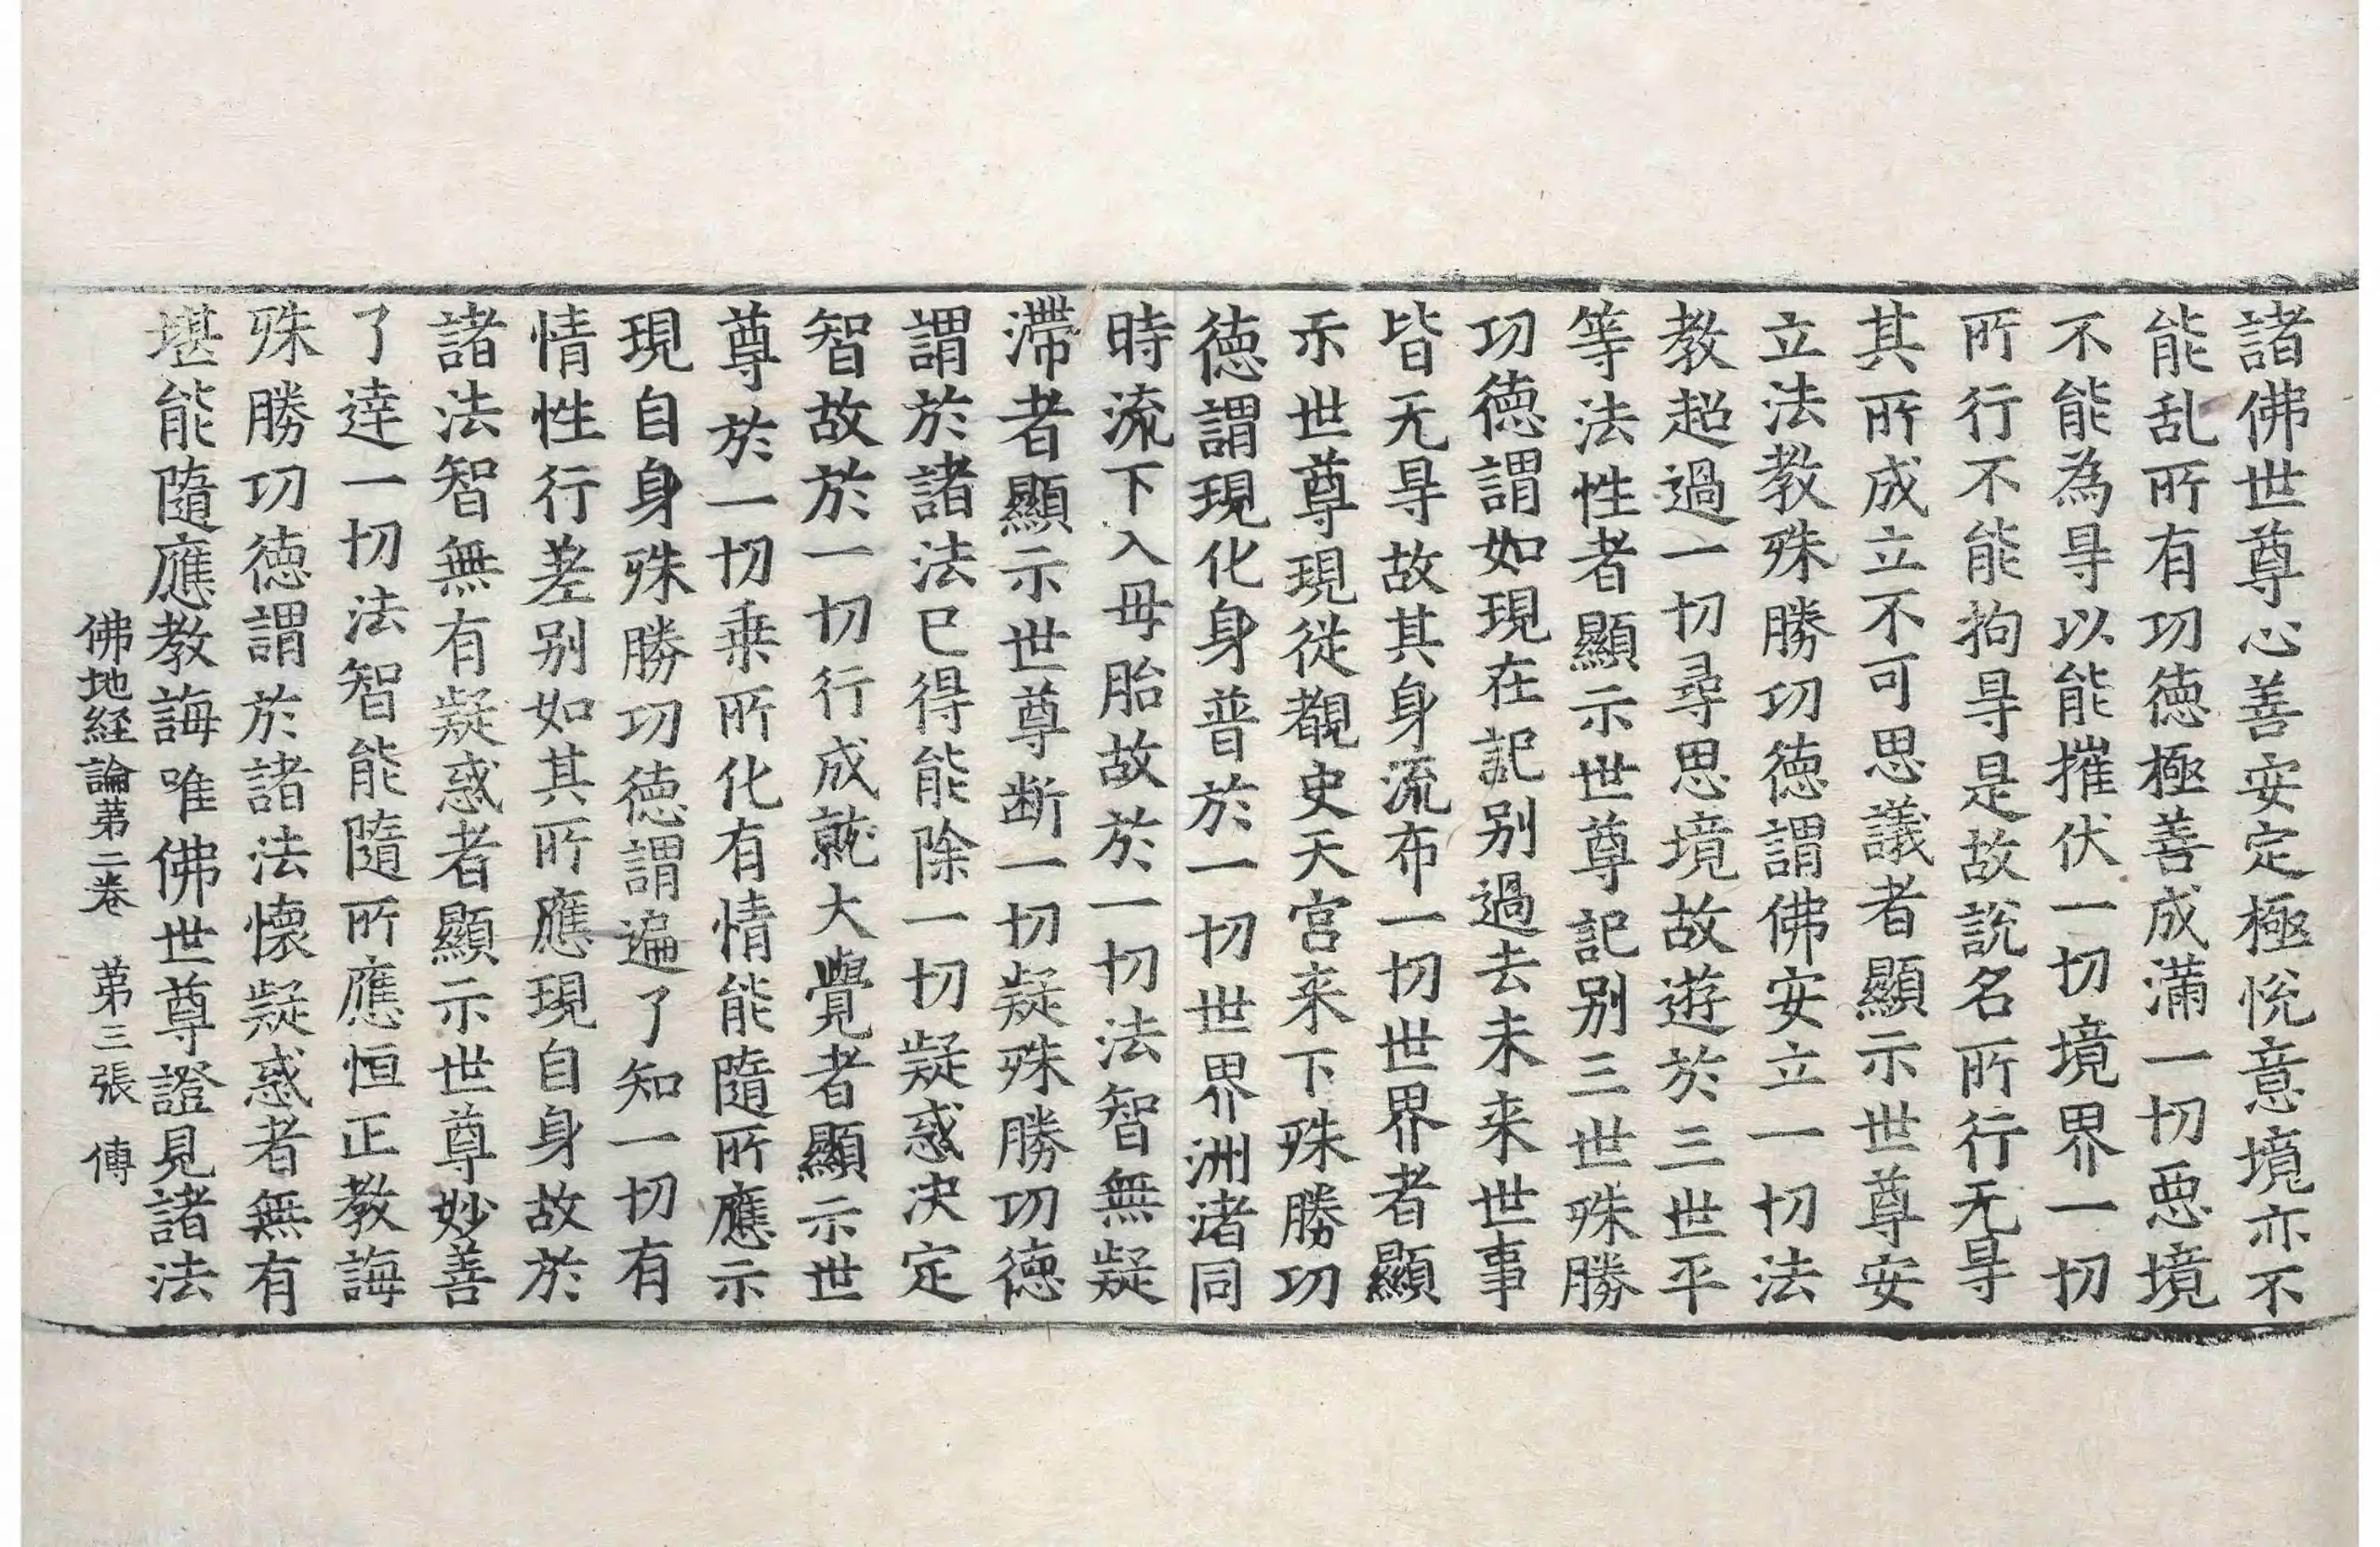 諸佛世尊心善安定極悅意境亦不
能乱所有功德極善成滿一切惡境
不能為㝵以能摧伏一切境界一切
所行不能拘㝵是故說名所行无㝵
其所成立不可思議者顯示世尊安
立法教殊勝功德謂佛安立一切法
教超過一切尋思境故遊於三世平
等法性者顯示世尊記别三世殊勝
功德謂如現在記别過去未来世事
皆无㝵故其身流布一切世界者顯
示世尊現從覩史天宫来下殊勝功
德謂現化身普於一切世界洲渚同
時流下入母胎故於一切法智無疑
滯者顯示世尊断一切疑殊勝功德
謂於諸法已得能除一切疑惑决定
智故於一切行成就大覺者顯示世
尊於一切乗所化有情能隨所應示
現自身殊勝功德謂遍了知一切有
情性行差别如其所應現自身故於
諸法智無有疑惑者顯示世尊妙善
了達一切法智能隨所應恒正教誨
殊勝功德謂於諸法懷疑惑者無有
堪能隨應教誨唯佛世尊證見諸法
佛地経論第二卷 第三張 傳